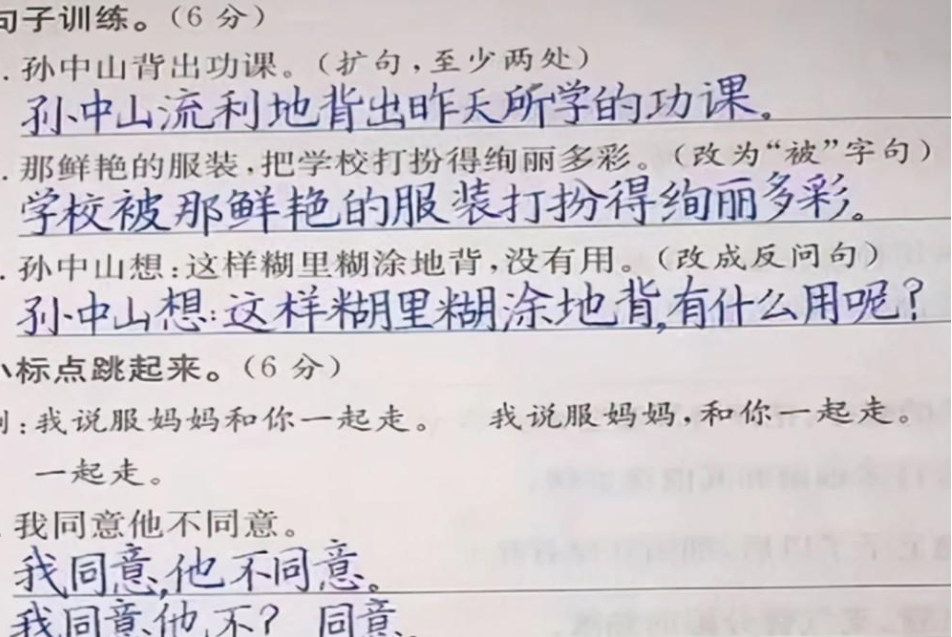 句子训练。(6分)
.孙中山背出功课。(扩句,至少两处)
孙中山流利地背出昨天所学的功课。
.那鲜艳的服装,把学校打扮得绚丽多彩。(改为“被”字句)
学校被那鲜艳的服装打扮得绚丽多彩。
.孙中山想:这样糊里糊涂地背,没有用。(改成反问句)
孙中山想:这样糊里糊涂地背,有什么用呢?
小标点跳起来。(6分)
例:我说服妈妈和你一起走。 我说服妈妈,和你一起走。
一起走。
.我同意他不同意。
我同意,他不同意。
我同意他不? 同意。